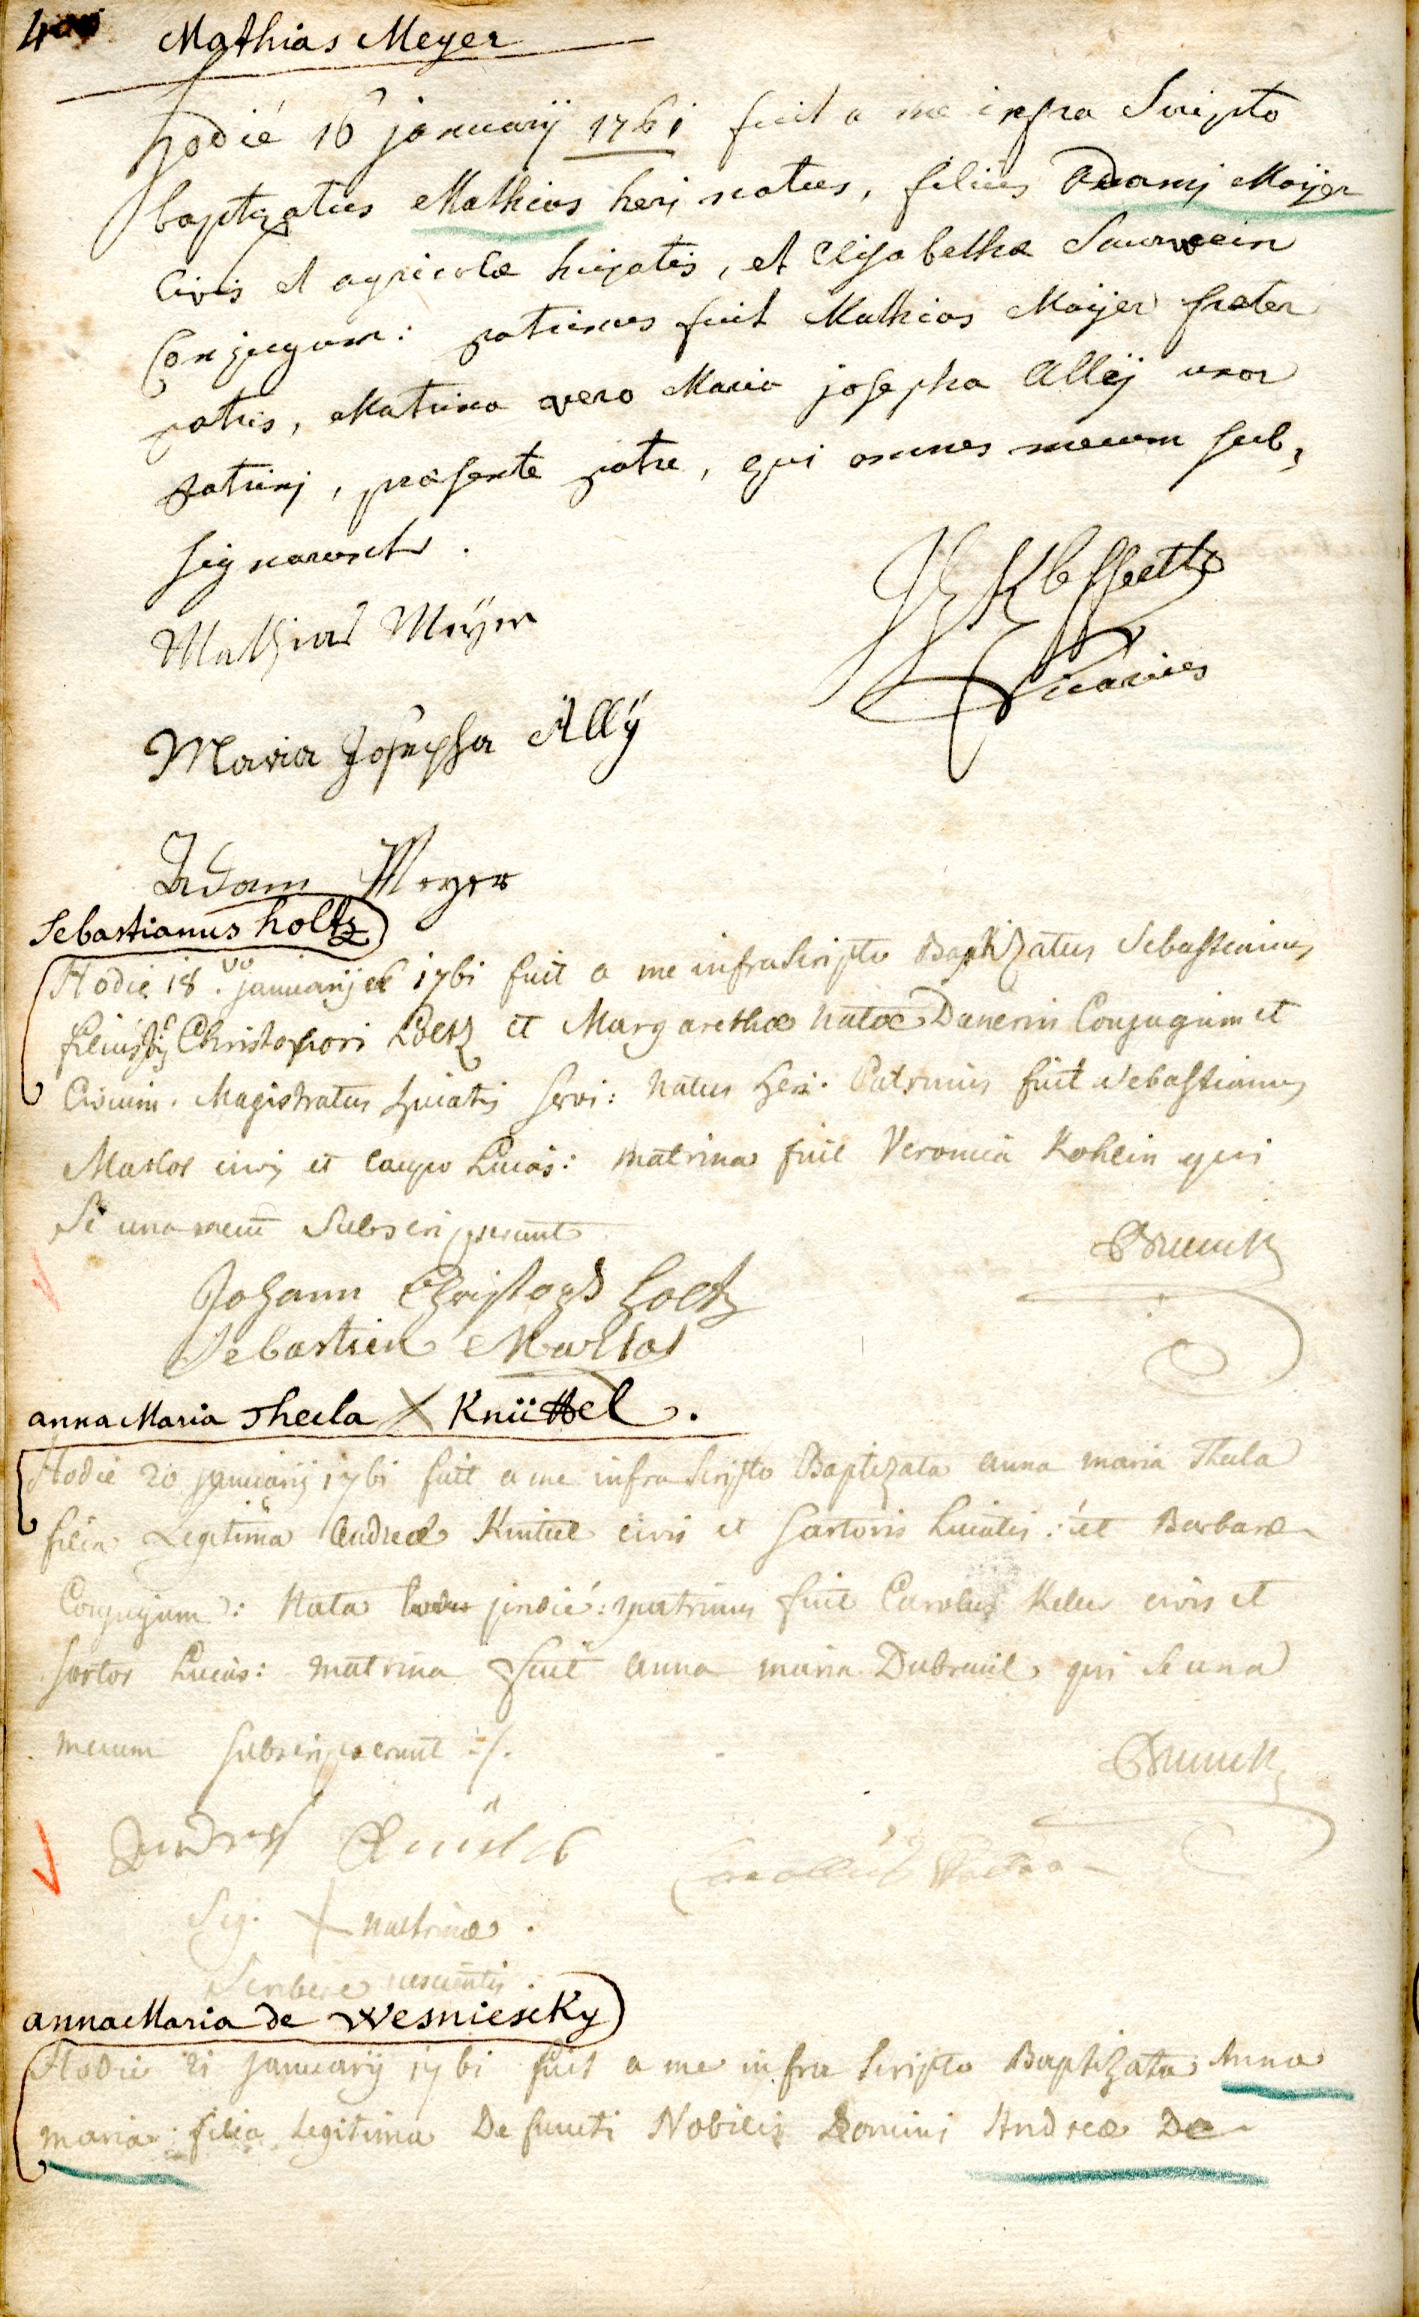 Mathias Meyer
hodié 16 januarij 1761 fuit a me infra Scripto
baptizatus Mathias heri natus, filius Adami Maijer
Civis et agricolæ hujatis, et Elisabethæ Saurwein
Conjugum: patrinus fuit Mathias Maijer frater
patris, Matrina vero Maria josepha Allÿ uxor
patrinj, præsente patre, qui omnes mecum sub,
signarunt.
Mathias Meÿer
Vicarius
Maria Josepha Allÿ
Adam Meyer
Sebastianus holtz
Hodie 18.vo januarij 1761 fuit a me infra Scripto Baptizatus Sebastianus
filius Christophori Holtz et Margarethæ natæ Danerin Conjugum et
Civium. Magistratus huiatis servi: natus heri. Patrinus fuit Sebastianus
Marlot civis et caupo huias: matrina fuit Veronica Kohlin qui
Se una mecū Subscripserunt
Brunck
Johann Christoph Holtz
Sebastien Marlot
anna Maria Thecla X Knüttel.
Hodie 20 januarij 1761 fuit a me infra Scripto Baptizata anna maria Thecla
filia Legitima Andreæ Knittel civis et Sartoris huiatis: et Barbaræ
Conjugum: Nata pridié: patrinus fuit Carolus Keller civis et
Sartor huias: matrina fuit anna maria Dubreuil qui se una
mecum Subscripserunt ./.
Brunck
Sig. + matrinæ.
Scribere nescientis.
anna Maria de Wesniescky
Hodie 21 januarij 1761 fuit a me infra Scripto Baptizata Anna
maria filia Legitima Defuncti Nobilis Domini Andreæ De